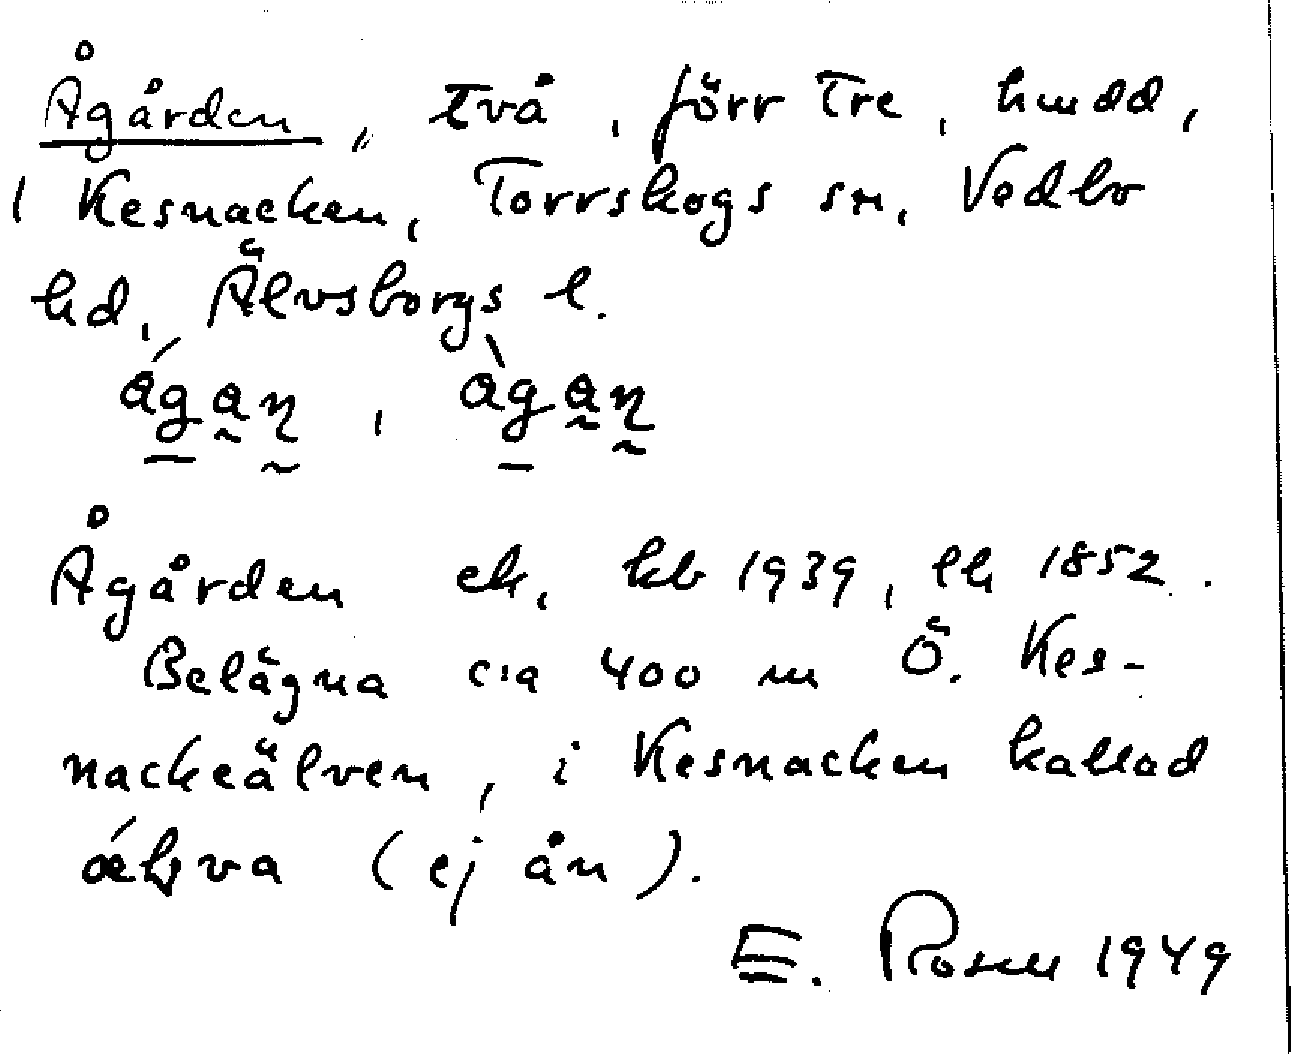 Ågården,, två, förr tre, hmdd,
i Kesnacken, Torrskogs sn, Vedbo
hd, Älvsborgs l.
ágan, àgan
Ågården ek, kb 1939, lk 1852.
Belägna c:a 400 m Ö. Kes-
nackeälven, i Kesnacken kallad
ǽlva (ej ån).
E. Rosen 1949